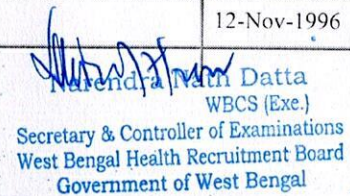 12-Nov-1996
Narendra Nath Datta
WBCS (Exe.)
Secretary & Controller of Examinations
West Bengal Health Recruitment Board
Government of West Bengal